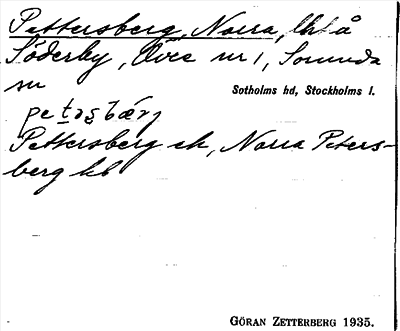 Pettersberg, Norra, lht å
Söderby, Övre nr 1, Sorunda
sn
Sotholms hd, Stockholms l.
Pettersberg ek, Norra Peters-
berg hb
GÖRAN ZETTERBERG 1935.